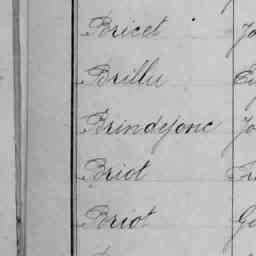 Bricet Jo
Brillu Eu
Brindejonc Jo
Briot Fr
Briot Ga